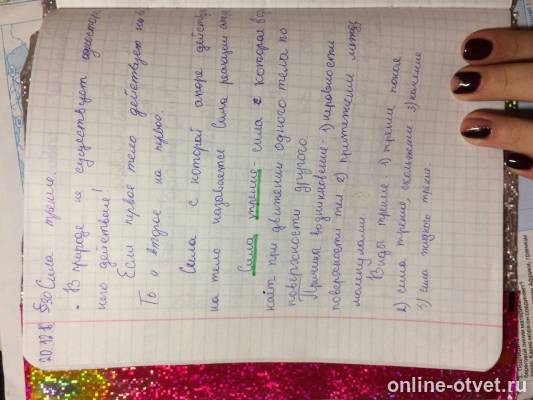 20.12.18 §30 Сила трения.
• В природе не существует односторон
него действия!
Если первое тело действует на в
То и второе на первое.
Сила с которой опоре действ
на тело называется Сила реакции опор
Сила трения - сила с которая воз
каёт при движении одного тела по
поверхности другого.
Причина возникновения: 1) неровности
поверхности тел 2) притяжение между
молекулами
Виды трения: 1) трения покоя
2) сила трения, скольжения 3) качения
4) сила жидкого трения
online-otvet.ru